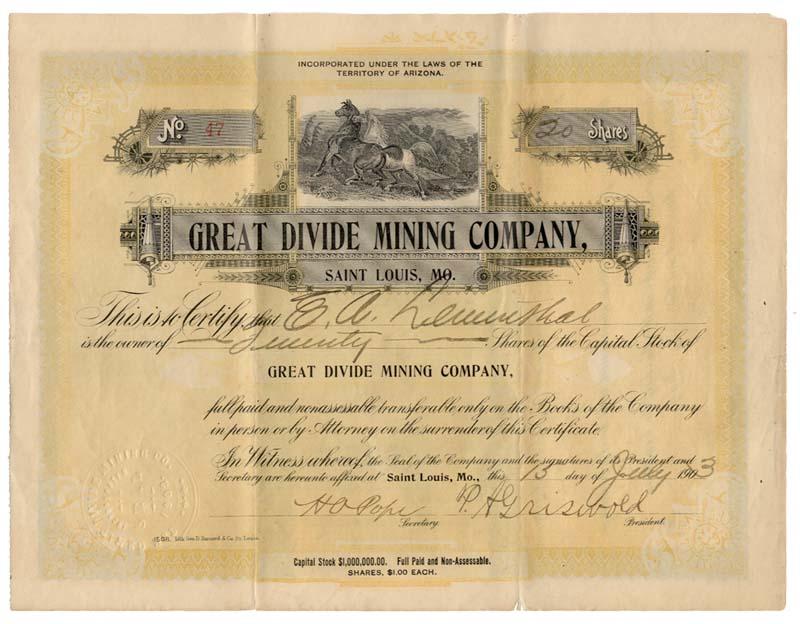 INCORPORATED UNDER THE LAWS OF THE
TERRITORY OF ARIZONA.
No. 47
Shares
GREAT DIVIDE MINING COMPANY,
SAINT LOUIS, MO.
This is to Certify, that E. A.
is the owner of Seventy Shares of the Capital Stock of
GREAT DIVIDE MINING COMPANY,
full paid and nonassessable transferable only on the Books of the Company
in person or by Attorney on the surrender of this Certificate.
In Witness whereof, the Seal of the Company and the signatures of its President and
Secretary are hereunto affixed at Saint Louis, Mo., this 13 day of July 1903
H O Pope P. H Griswold
Secretary. President.
Lith. Geo. D. Barnard & Co. St. Louis.
Capital Stock $1,000,000.00. Full Paid and Non-Assessable.
SHARES, $1.00 EACH.